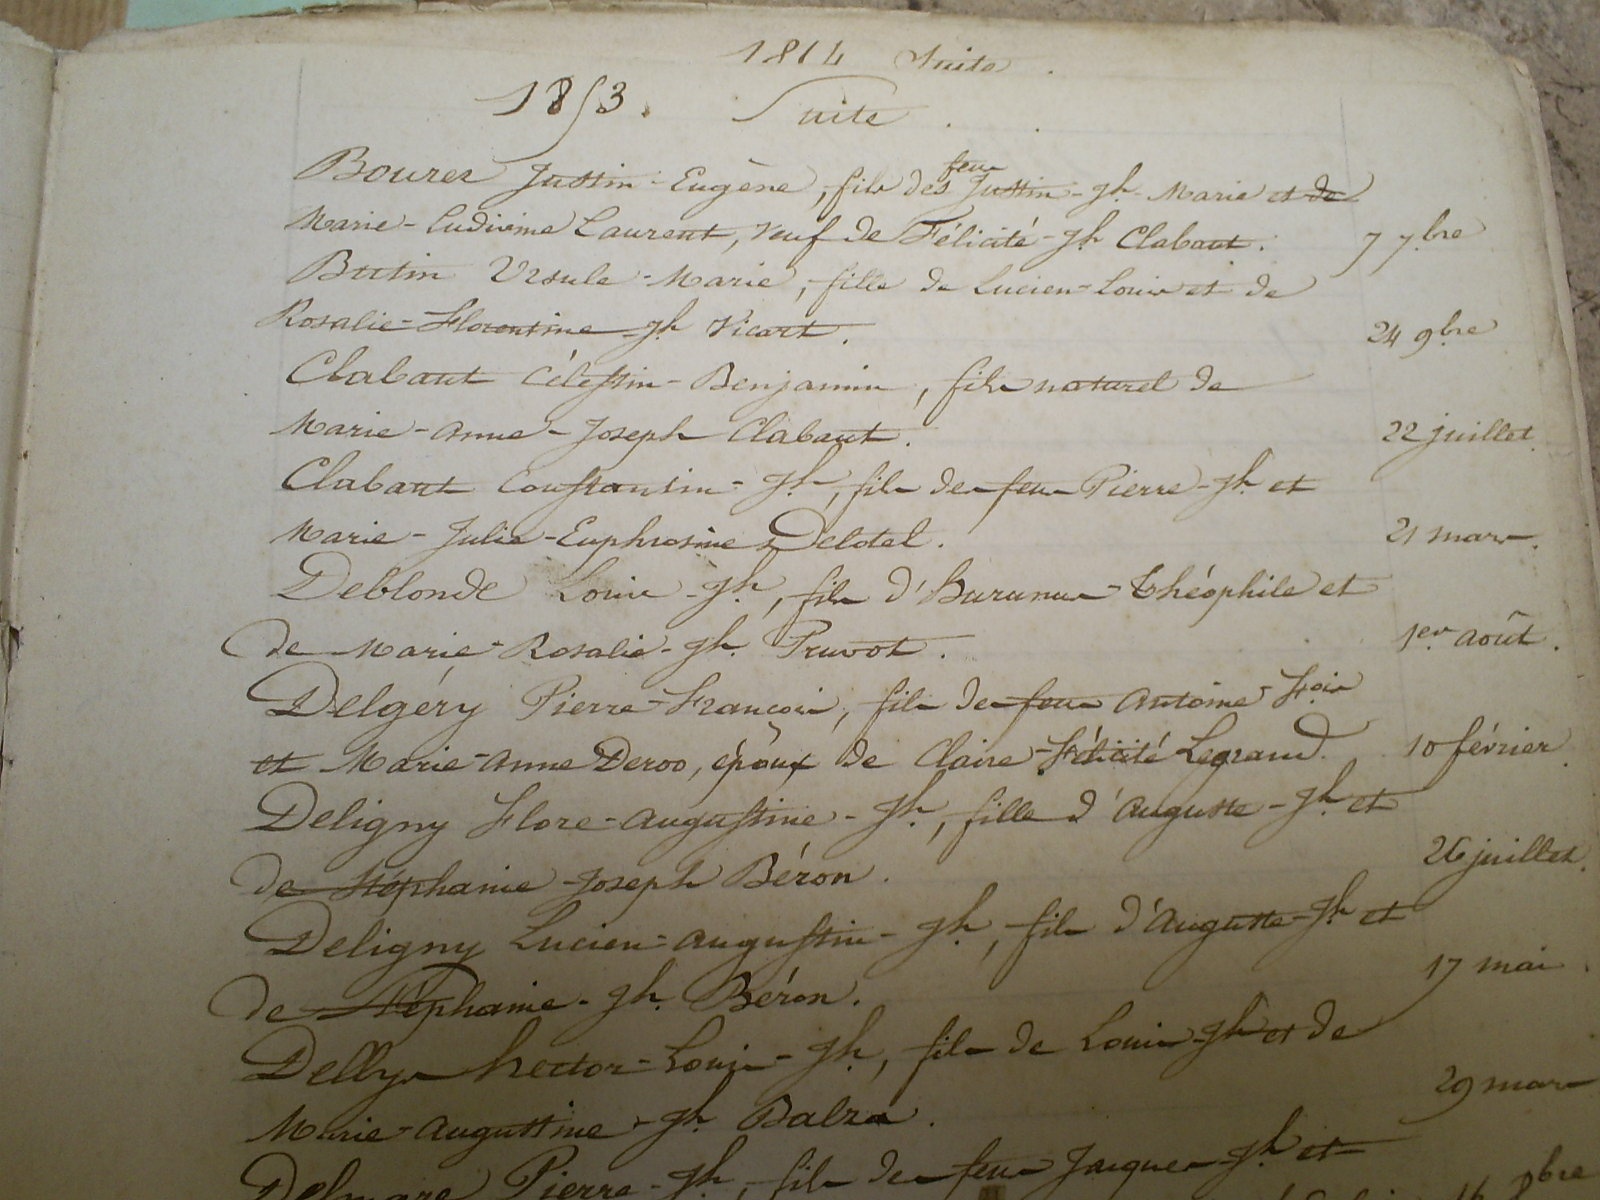 1814 Suite.
1853. Suite.
Bourez Justin-Eugène, fils des feu Justin-Jh-Marie et de
Marie-Ludivine Laurent, veuf de Félicité-Jh Clabaut. 7 7.bre
Butin Ursule-Marie, fille de Lucien-Louis et de
Rosalie-Florentine-Jh Vicart. 24 9bre
Clabaut Célestin-Benjamin, fils naturel de
Marie-Anne-Joseph Clabaut. 22 juillet.
Clabaut Constantin-Jh, fils de feu Pierre-Jh et
Marie-Julie-Euphrosine Delotel. 21 mars.
Deblonde Louis-Jh, fils d' Théophile et
de Marie-Rosalie-Jh. Pruvot. 1er août.
Delgéry Pierre-François, fils de feu Antoine-Fois
et Marie-Anne Deroo, époux de Claire-Félicité Legrand. 10 février.
Deligny Flore-Augustine-Jh, fille d'Auguste-Jh et
de Stéphanie-Joseph Béron. 26 juillet.
Deligny Lucien-Augustin-Jh, fils d'Auguste-Jh et
de Stéphanie-Jh. Béron. 17 mai.
Dellys Hector-Louis-Jh, fils de Louis-Jh et de
Marie-Augustine-Jh Balza. 29 mars
Pierre-Jh, fils de feu Jacques-Jh et